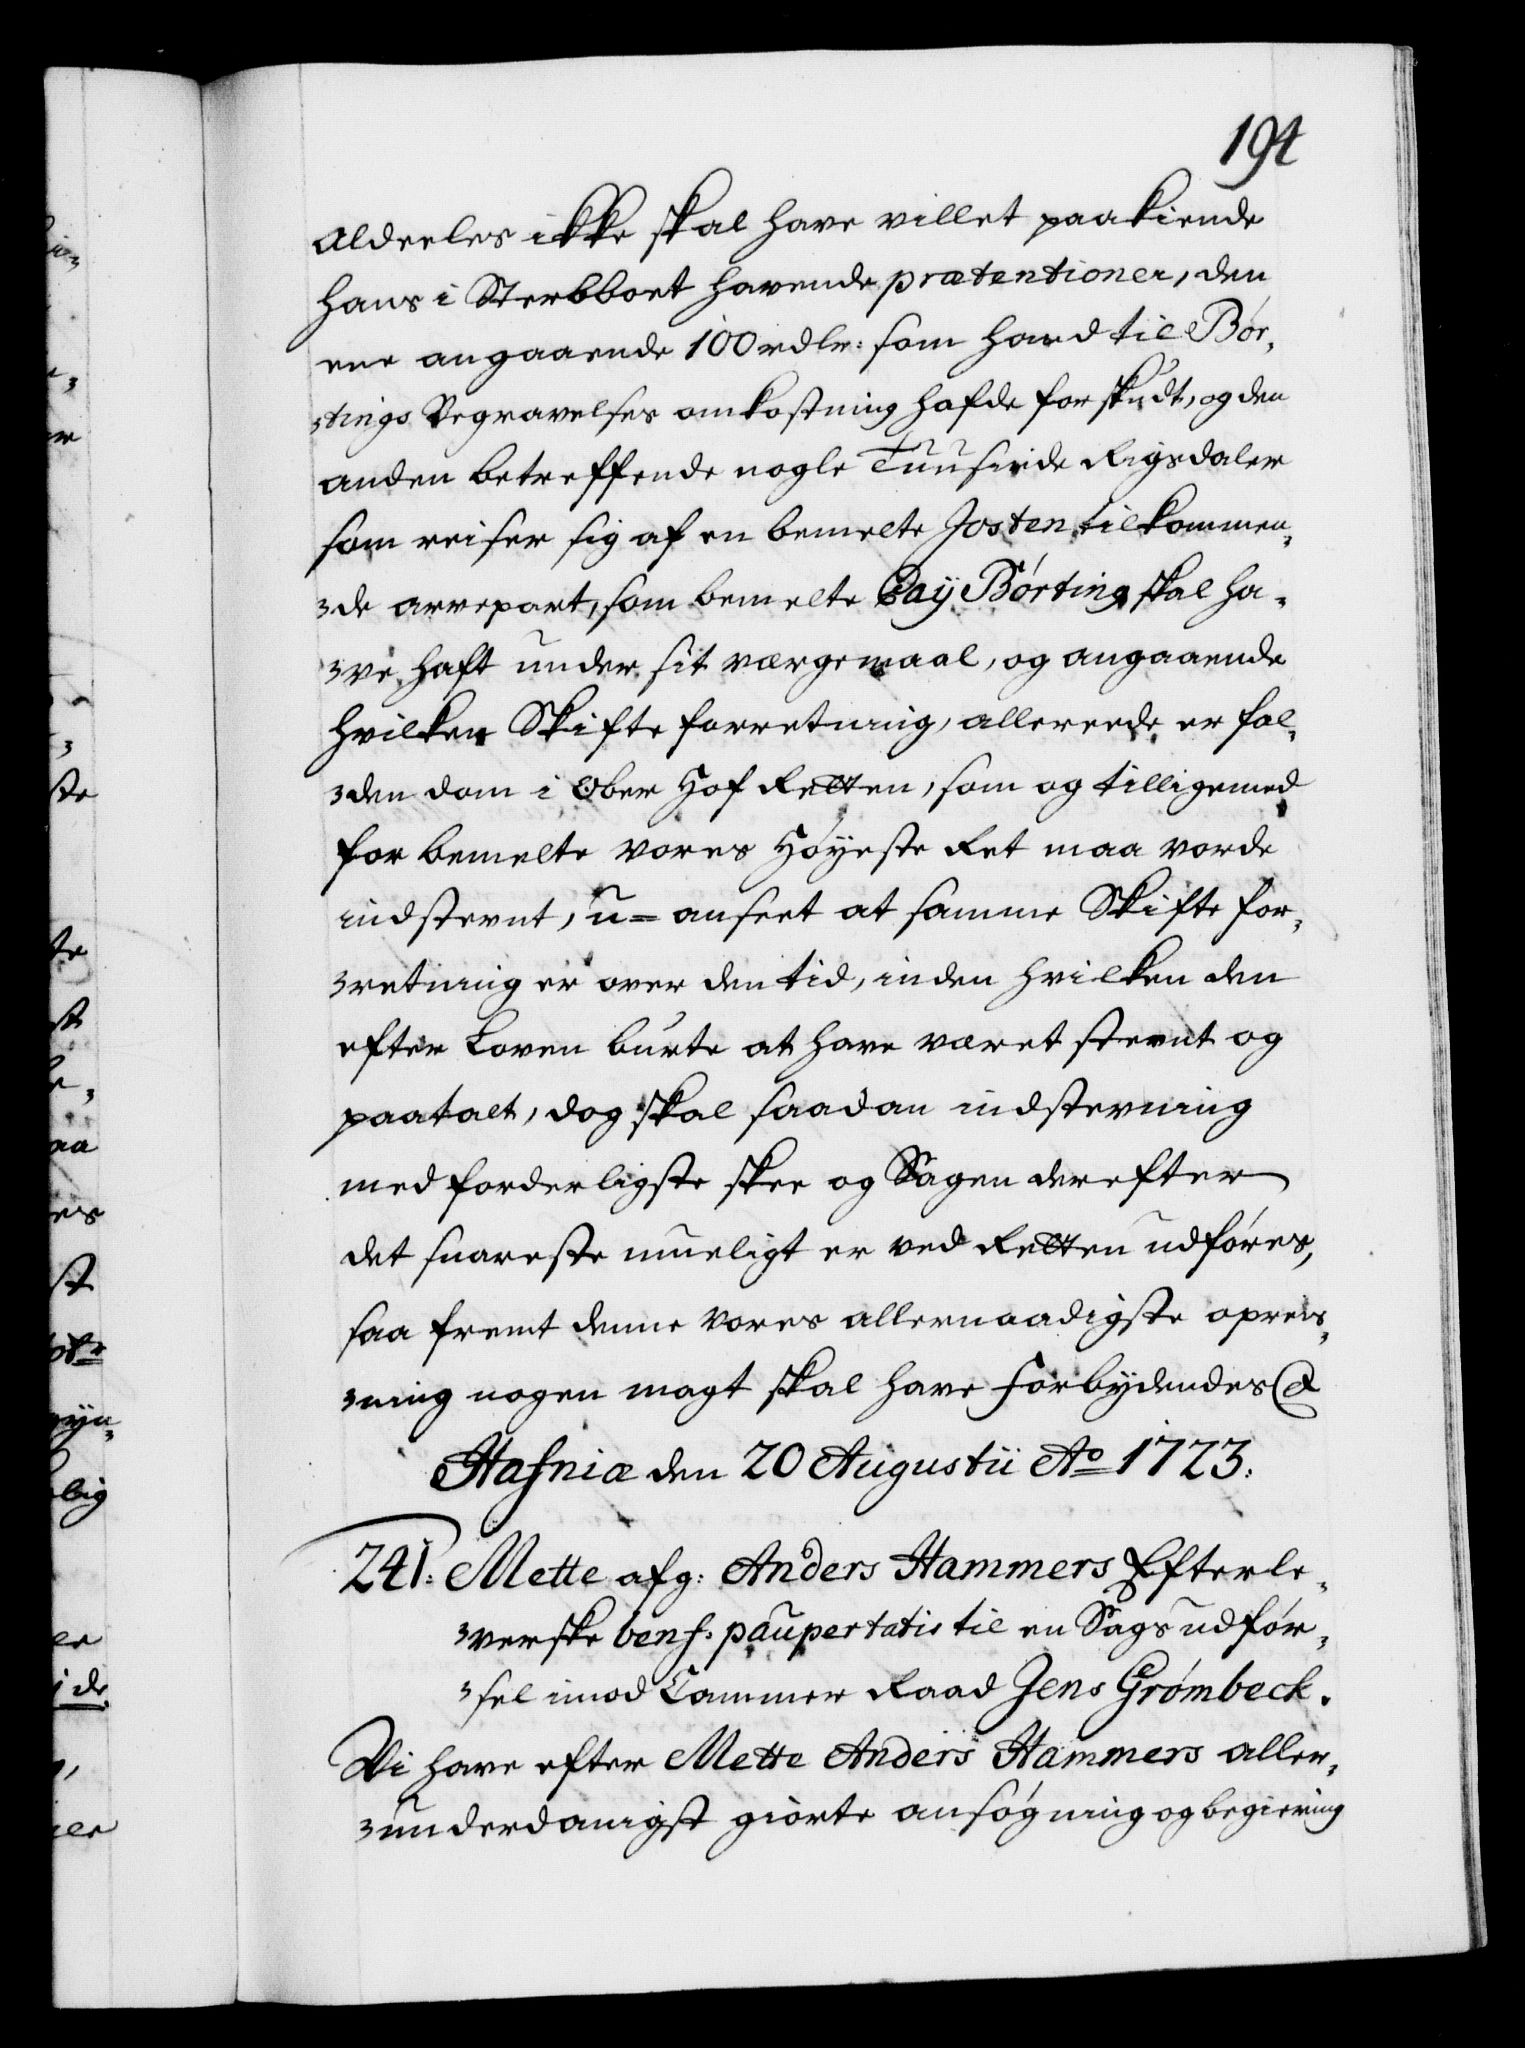 194
aldeeles ikke skal have villet paakiende
hans i Sterbboet havende prætentioner, den
ene angaaende 100 rdlr: som hand til Bør-
-tings Begravelses omkostning hafde forskudt, og den
anden betreffende nogle Tuusinde Rigsdaler
som reiser sig af en bemelte Josten tilkommen-
-de arvepart, som bemelte Caÿ Børting skal ha-
-ve haft under sit værgemaal, og angaaende
hvilken Skifte forretning, allereede er fal-
-den dom i Ober Hof Retten, som og tilligemed
for bemelte vores Høyeste Ret maa vorde
indstevnt, u-anseet at samme Skifte for-
-retning er over den tid, inden hvilken den
efter Loven burte at have været stevnt og
paatalt, dog skal saadan indstevning
med forderligste skee og Sagen derefter
det snareste mueligt er ved Retten udføres,
saa fremt denne vores allernaadigste opreis-
-ning nogen magt skal have Forbydendes &
Hafniæ den 20 Augustii Ao 1723.
241. Mette afg: Anders Hammers Efterle-
-verske benf: paupertatis til en Sags udfør-
-sel imod Cammer Raad Jens Grømbeck.
Vi have efter Mette Anders Hammers aller-
-underdanigst giorte ansøgning og begiering